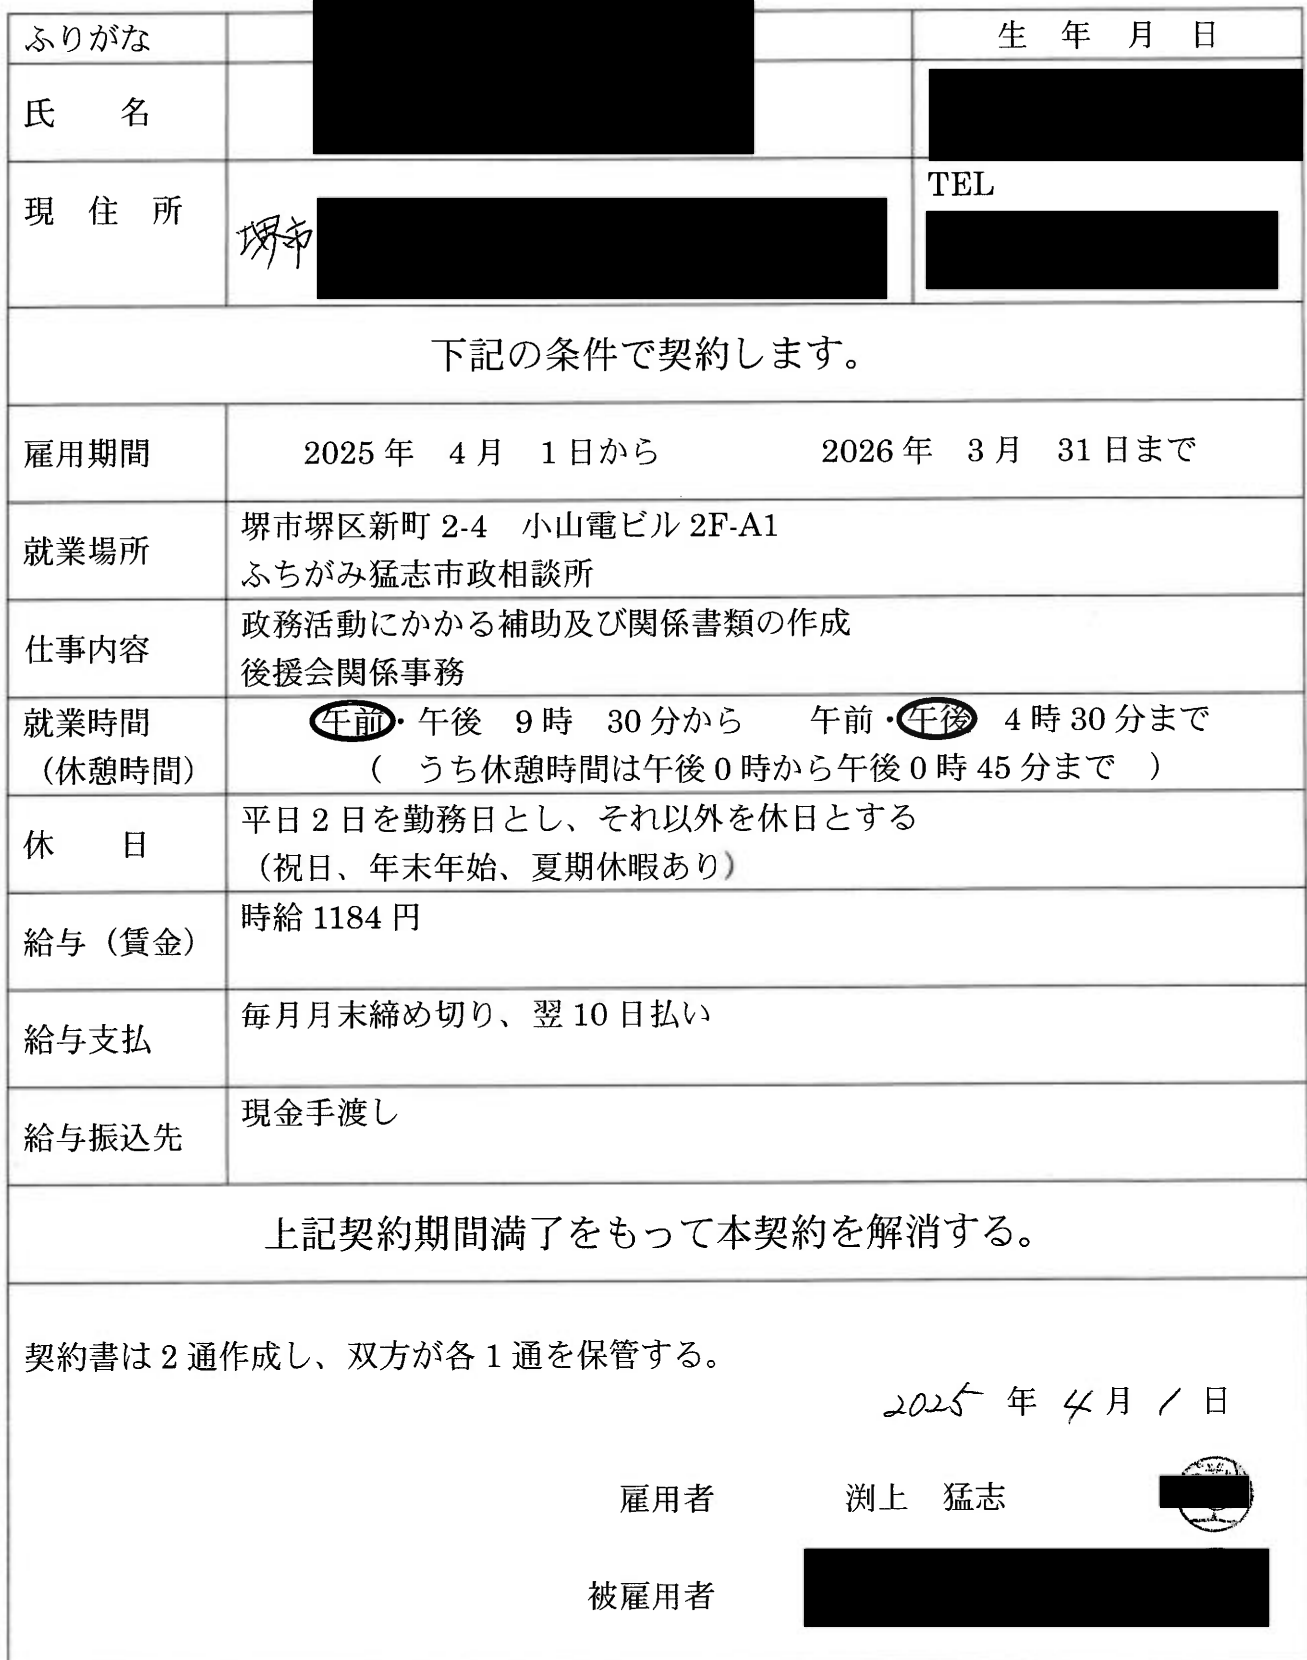 ふりがな
生 年 月 日
氏 名
現 住 所
堺市
TEL
下記の条件で契約します。
雇用期間
2025年 4月 1日から 2026年 3月 31日まで
就業場所
堺市堺区新町 2-4 小山電ビル 2F-A1
ふちがみ猛志市政相談所
仕事内容
政務活動にかかる補助及び関係書類の作成
後援会関係事務
就業時間
（休憩時間）
午前・午後 9時 30分から 午前・午後 4時30分まで
（ うち休憩時間は午後0時から午後0時45分まで ）
休 日
平日2日を勤務日とし、それ以外を休日とする
（祝日、年末年始、夏期休暇あり）
給与（賃金）
時給 1184 円
給与支払
毎月月末締め切り、翌10日払い
給与振込先
現金手渡し
上記契約期間満了をもって本契約を解消する。
契約書は2通作成し、双方が各1通を保管する。
2025 年 4 月 1 日
雇用者 渕上 猛志
被雇用者